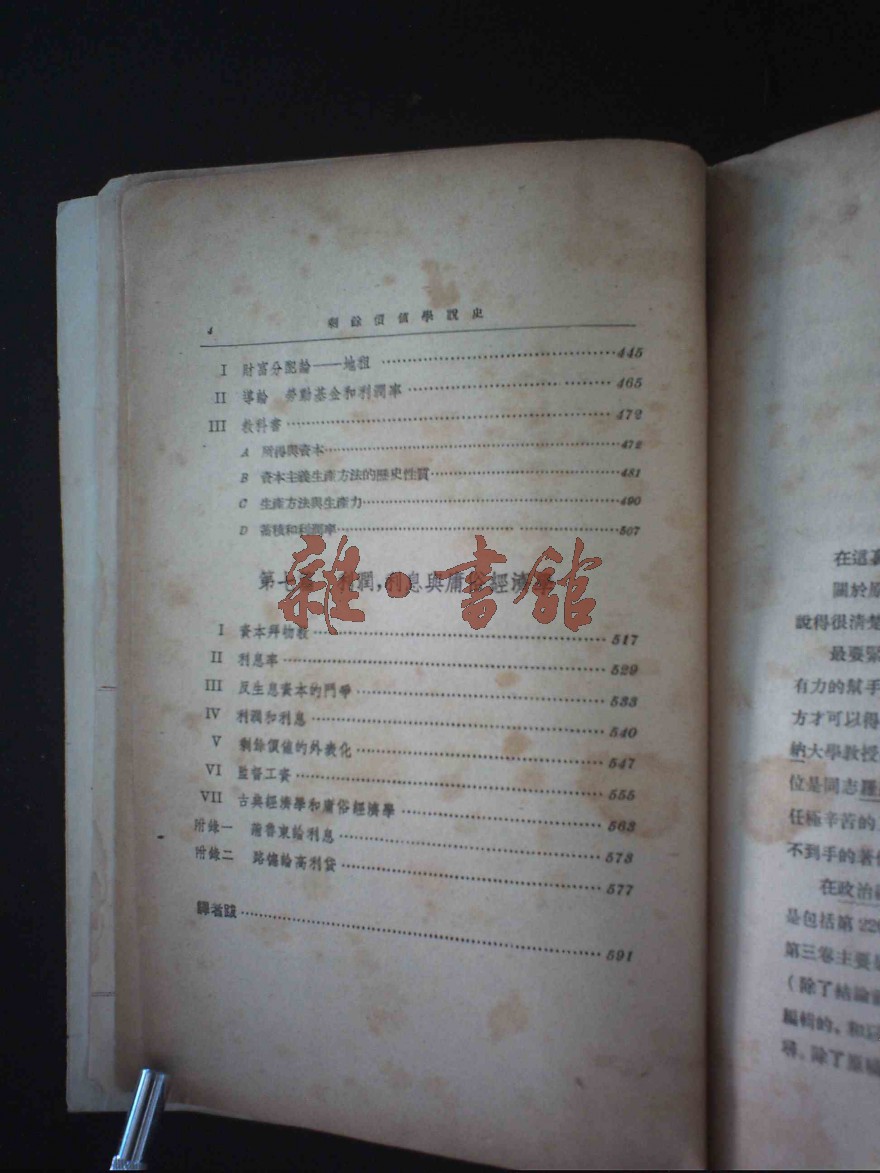 4
剩餘價值學說史
I 財富分配論——地租 445
II 導論 勞動基金和利潤率 465
III 教科書 472
A 所得與資本 472
B 資本主義生產方法的歷史性質 481
C 生產方法與生產力 490
D 蓄積和利潤率 507
第七篇 利潤,利息與庸俗經濟學
雜·書館
I 資本拜物教 517
II 利息率 529
III 反生息資本的鬥爭 533
IV 利潤和利息 540
V 剩餘價值的外表化 547
VI 監督工資 555
VII 古典經濟學和庸俗經濟學 563
附錄一 蒲魯東論利息 573
附錄二 路德論高利貸 577
譯者跋 591
在這
關於原
說得很清楚
最要緊
有力的幫手
方才可以得
納大學教授
位是同志羅
任極辛苦的
不到手的著作
在政治
是包括第 220
第三卷主要
(除了結論
編輯的，和
尋。除了